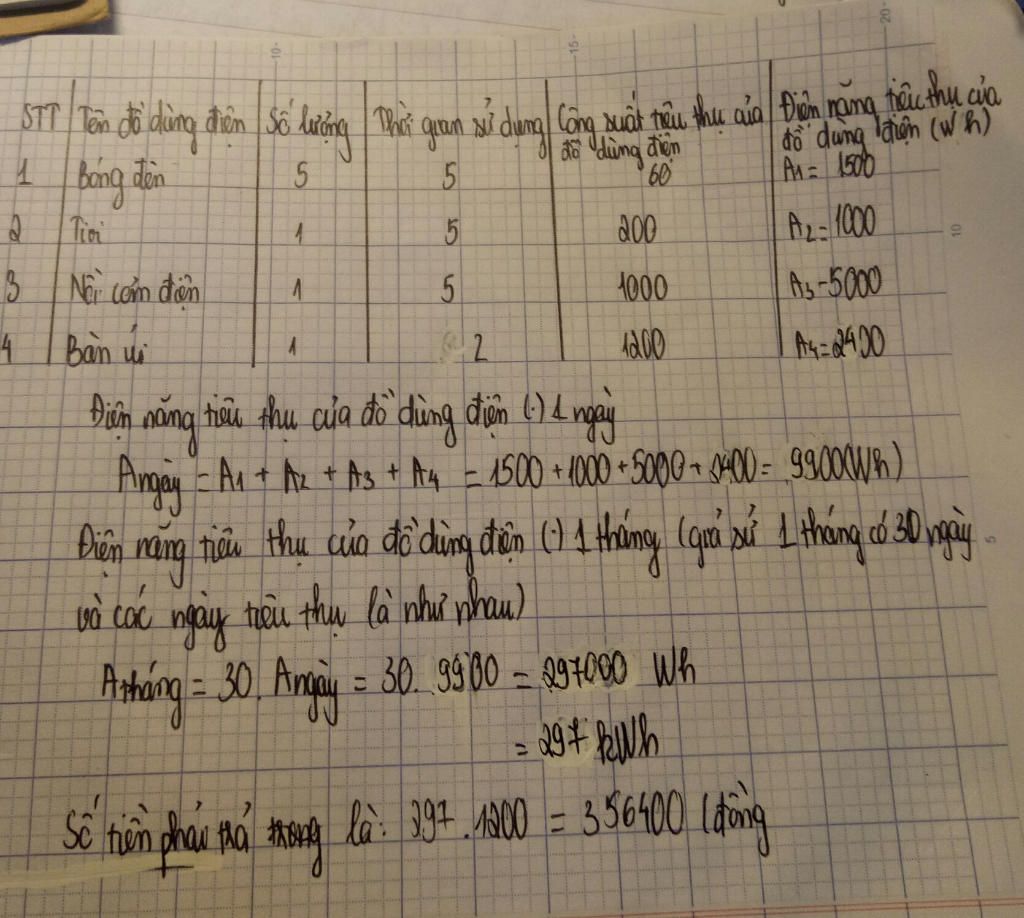 STT Tên đồ dùng điện Số lượng Thời gian sử dụng Công suất tiêu thụ của đồ dùng điện Điện năng tiêu thụ của đồ dùng điện (Wh)
1 Bóng đèn 5 5 60 A1 = 1500
2 Tivi 1 5 200 A2 = 1000
3 Nồi cơm điện 1 5 1000 A3 - 5000
4 Bàn ủi 1 2 1200 A4 = 2400
Điện năng tiêu thụ của đồ dùng điện (·) 1 ngày
Angày = A1 + A2 + A3 + A4 = 1500 + 1000 + 5000 + 2400 = 9900(Wh)
Điện năng tiêu thụ của đồ dùng điện (·) 1 tháng (giả sử 1 tháng có 30 ngày
và các ngày tiêu thụ là như nhau)
Atháng = 30. Angày = 30. 9900 = 297000 Wh
= 297 kWh
Số tiền phải trả trong là: 297 . 1200 = 356400 (đồng
10
15
20
10
5